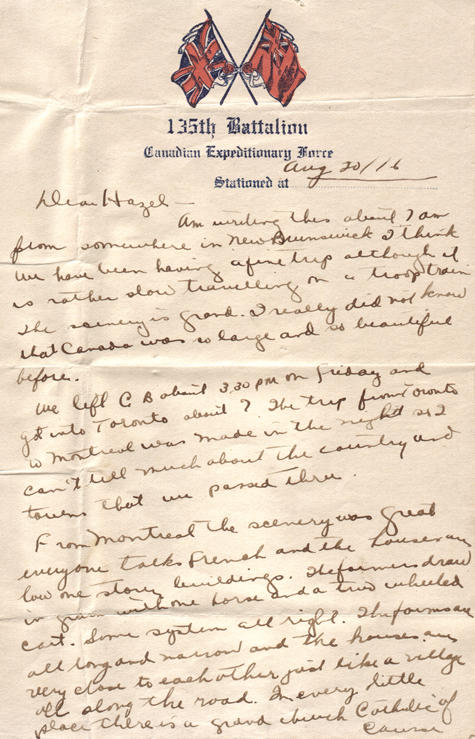 135th Battalion
Canadian Expeditionary Force
Aug 20/16
Stationed at
Dear Hazel -
Am writing this about 7 am
from somewhere in New Brunswick I think
We have been having a fine trip although it
is rather slow travelling on a troop train
The scenery is grand. I really did not know
that Canada was so large and so beautiful
before.
We left C B about 3.30 pm on Friday and
got into Toronto about 7. The trip from Toronto
to Montreal was made in the night so I
can't tell much about the country and
towns that we passed thru.
From Montreal the scenery was great
everyone talks French and the houses are
low one story buildings. The farmers draw
in grain with one horse and a two wheeled
cart. Some system all right. The farms are
all long and narrow and the houses are
very close to each other just like a village
all along the road. In every little
place there is a grand church Catholic of
course